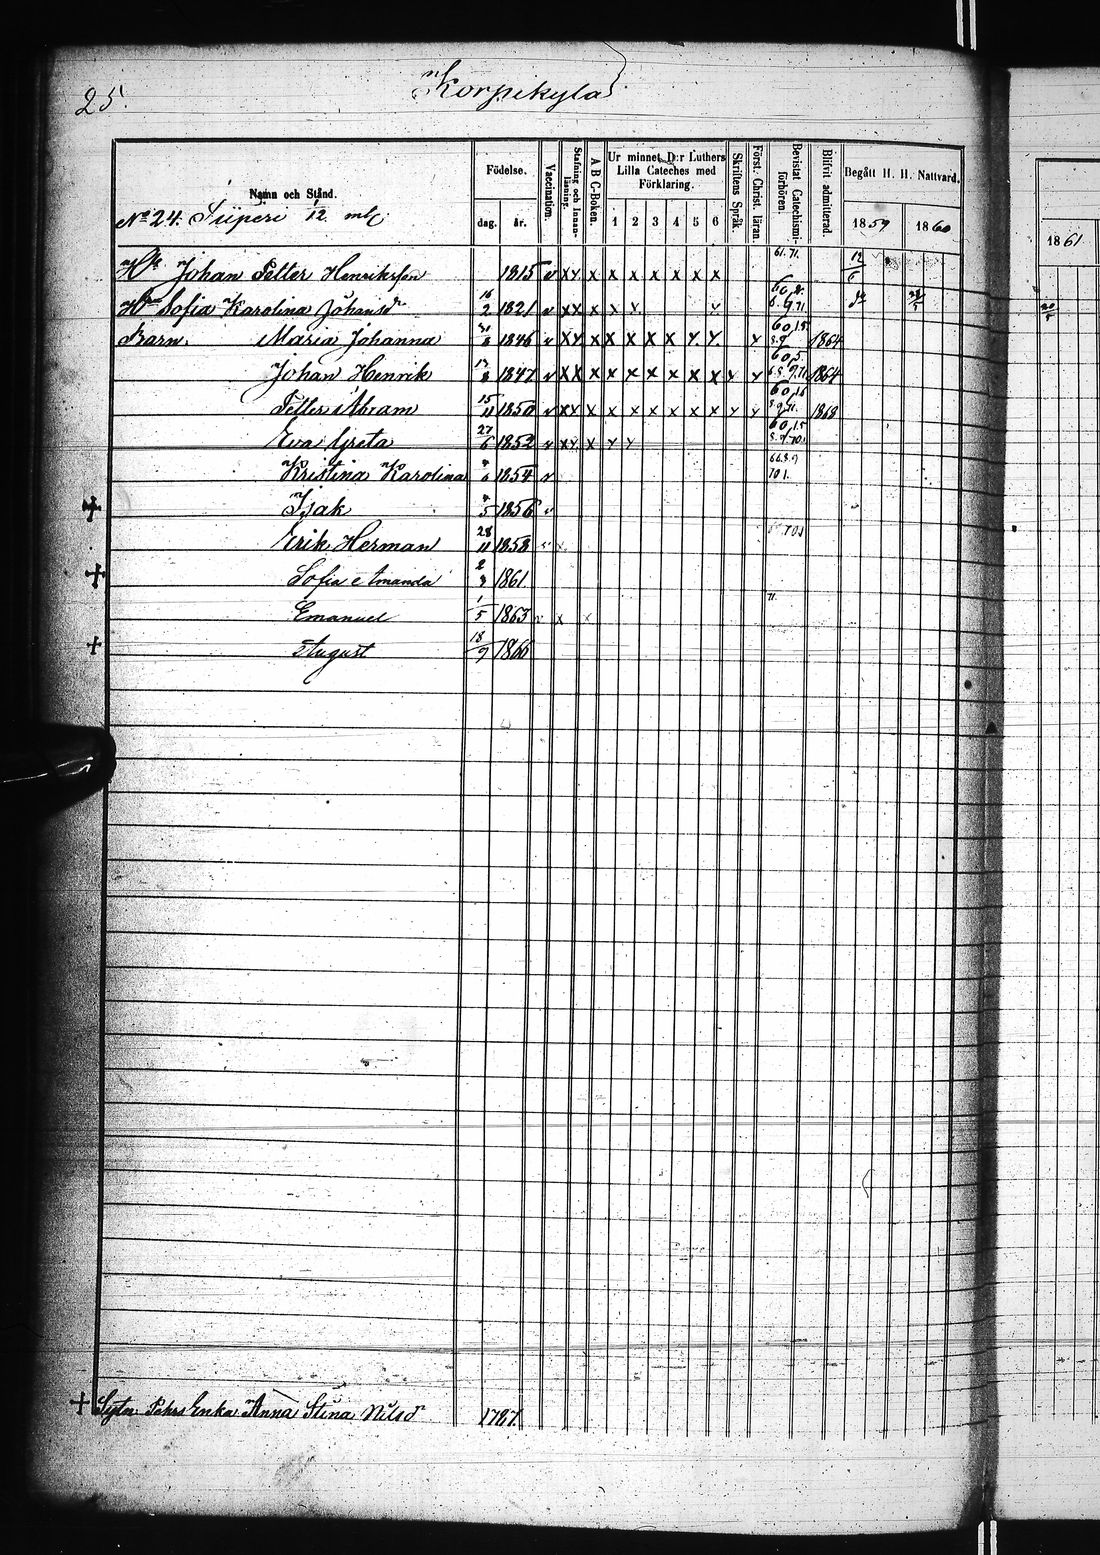 25.
Korpikylä
Namn och Stånd.
Födelse.
dag.
år.
Vaccination.
Stafning och Innanläsning.
A B C-Boken.
Ur minnet D:r Luthers Lilla Cateches med Förklaring.
1 2 3 4 5 6
Skriftens Språk.
Först. Christ. läran.
Bevistat Catechismiförhören.
Blifvit admitterad.
Begått H. H. Nattvard.
1859 1860
1861
No 24. Siiperi 1/12 mtl
Johan Petter Henriksson 1815 v x x x x x x x x x 61. 71. 12/6
Sofia Karolina Johansdr 16/2 1821 v x x x x x
Barn. Maria Johanna 1846 v x x x x x x x x x x 60, 15 1864
Johan Henrik 1847 v x x x x x x x x x x x 60, 5 1864
Petter Abram 15/11 1850 v x x x x x x x x x x x 1868
Eva Greta 27/6 1852 v x x x x x 60, 15
Kristina Karolina 1854 v 70 1.
Isak 1856 v
Erik Herman 28/11 1858
Sofia Amanda 2/3 1861
Emanuel 1/5 1863 x x 71.
August 18/9 1866
Enka Anna Stina Nilsdr 1787.